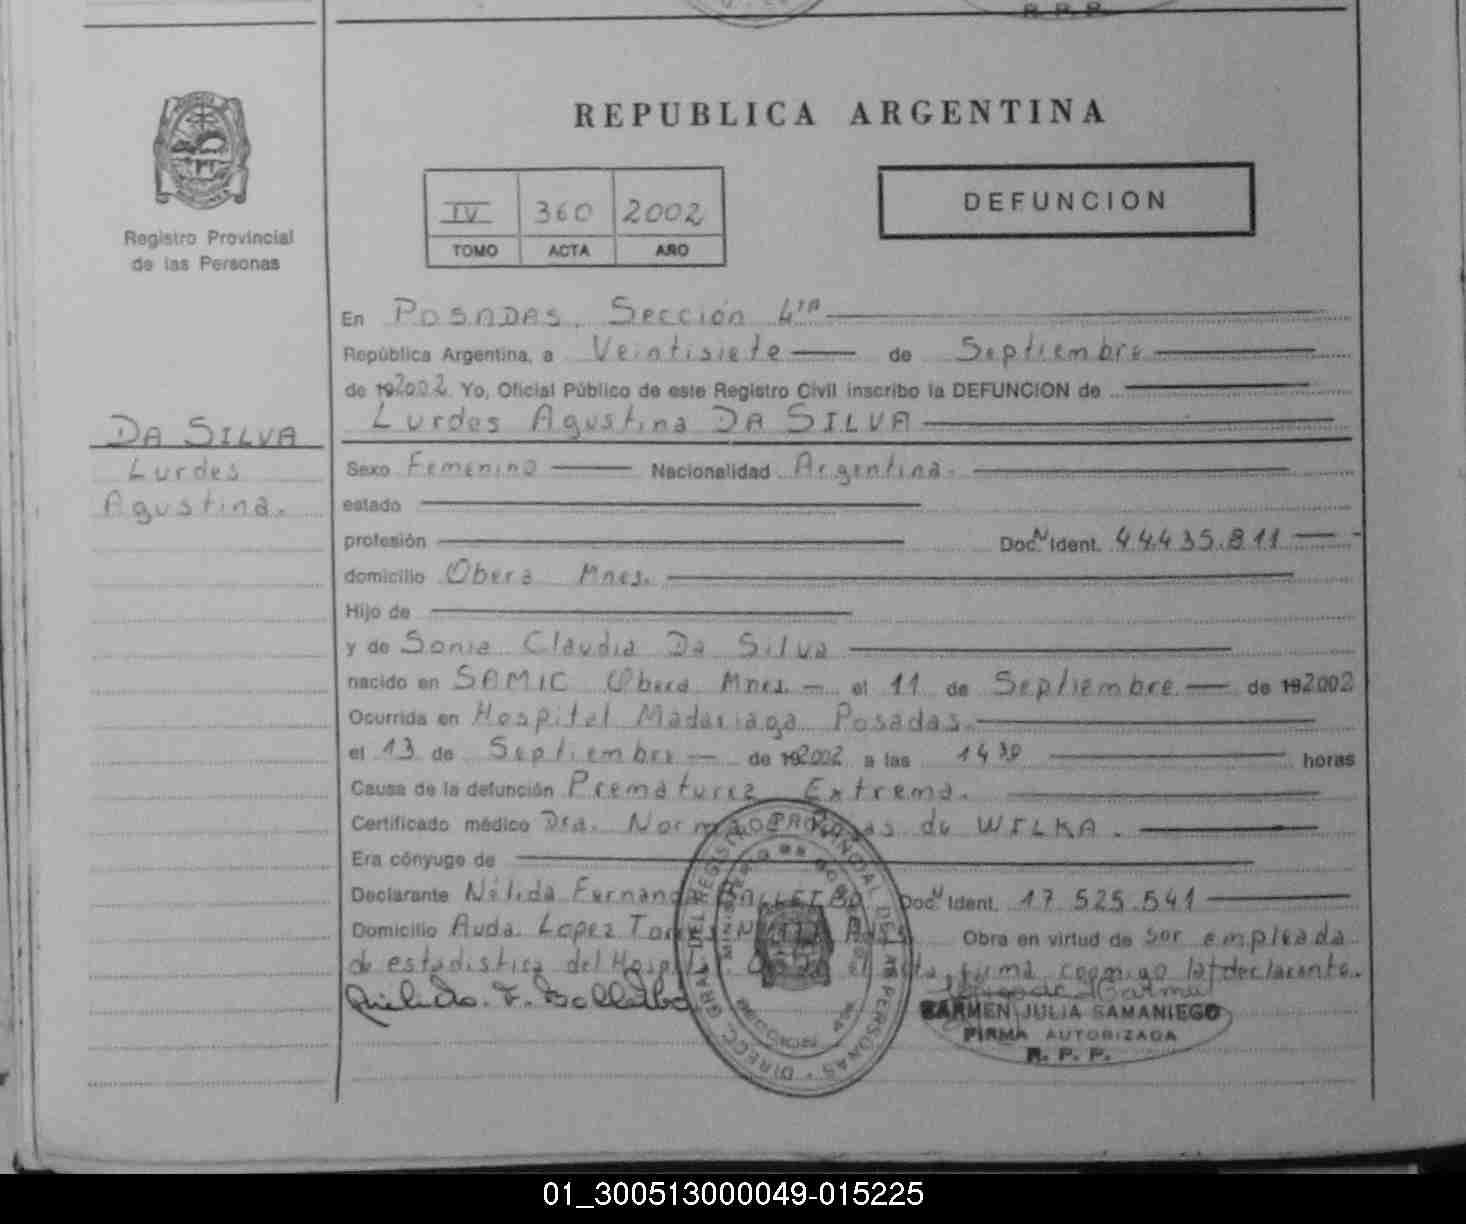 R. P. P.
REPUBLICA ARGENTINA
Registro Provincial
de las Personas
IV 360 2002
TOMO ACTA AÑO
DEFUNCION
En POSADAS, Sección 4ta
República Argentina, a Veintisiete de Septiembre
de 192002. Yo, Oficial Público de este Registro Civil inscribo la DEFUNCION de
Lurdes Agustina DA SILVA
DA SILVA
Lurdes
Agustina.
Sexo Femenino Nacionalidad Argentina.
estado
profesión Doc. N Ident. 44.435.811
domicilio Obera Mnes.
Hijo de
y de Sonia Claudia Da Silva
nacido en SAMIC Obera Mnes. el 11 de Septiembre de 192002
Ocurrida en Hospital Madariaga Posadas.
el 13 de Septiembre de 192002 a las 1430 horas
Causa de la defunción Prematurez Extrema.
Certificado médico Dra. Norma de WILKA.
Era cónyuge de
Declarante Nélida Doc. N Ident. 17.525.541
Domicilio Avda. Lopez Obra en virtud de ser empleada
de estadistica del firma conmigo la declarante.
CARMEN JULIA SAMANIEGO
FIRMA AUTORIZADA
R. P. P.
DIRECC. GRAL. DEL REGISTRO PROVINCIAL DE LAS PERSONAS
01_300513000049-015225